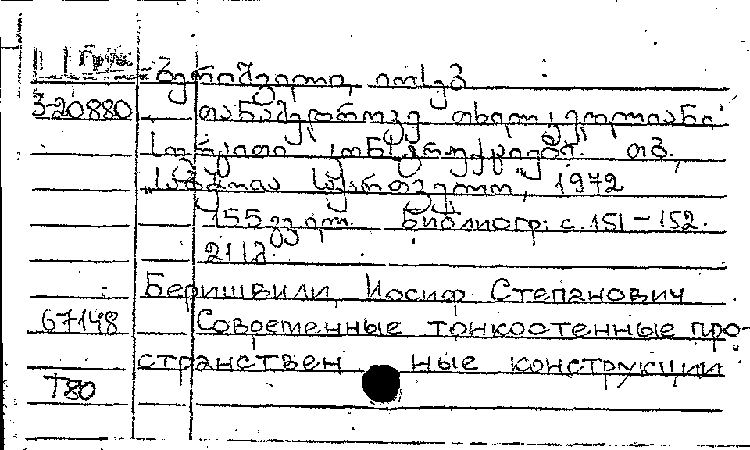 Груз.
ბერიშვილი, იოსებ
3-20880 თანამედროვე თხელკედლიანი
სივრცითი კონსტრუქციები. თბ.,
„საბჭოთა საქართველო", 1972
155 გვ. ил. Библиогр: с. 151-152.
21 სმ.
Беришвили, Иосиф Степанович
67148 Современные тонкостенные про-
странствен ные конструкции
T80